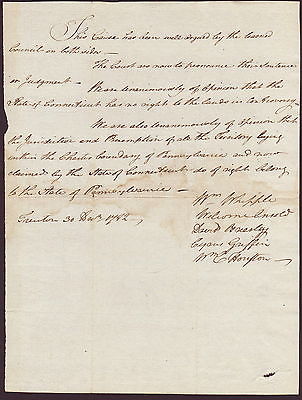 This Cause has been well argued by the learned
Council on both sides —
The Court are now to pronounce their Sentence
or Judgment —
We are unanimously of opinion that the
State of Connecticut has no right to the Lands in controversy
We are also unanimously of opinion that
the Jurisdiction and Preemption of all the Territory lying
within the Charter boundary of Pennsylvania and now
claimed by the State of Connecticut do of right belong
to the State of Pennsylvania —
Trenton 30 Decr 1782
Wm Whipple
Welcome Arnold
David Brearley
Cyrus Griffin
Wm C Houston